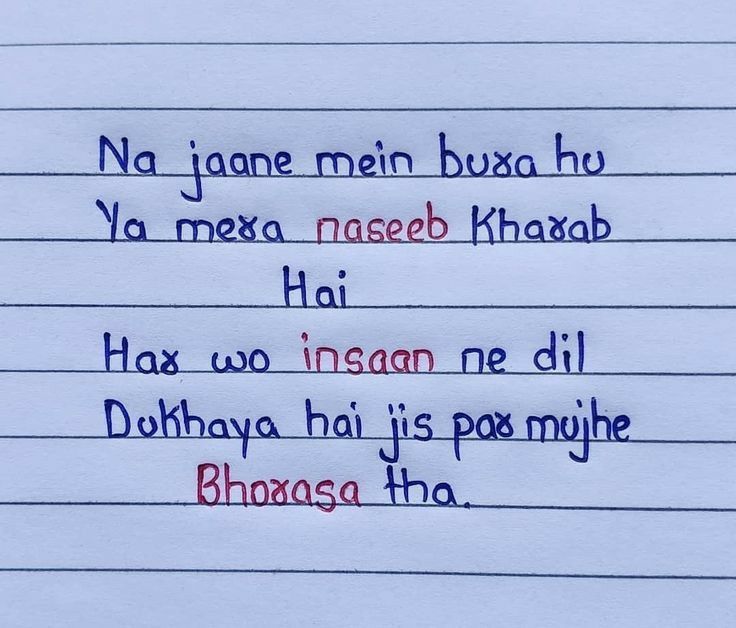 Na jaane mein bura hu
Ya mera naseeb Kharab
Hai
Har wo insaan ne dil
Dukhaya hai jis par mujhe
Bhorasa tha.